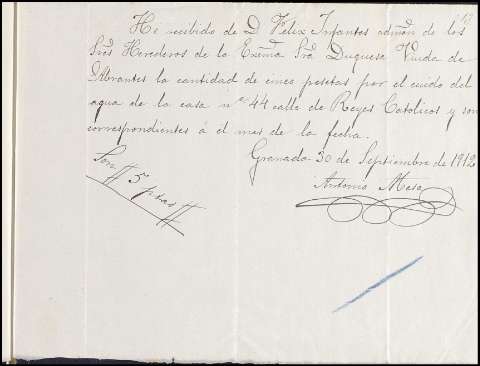 He recibido de D Felix Infantes admon de los
Sres Herederos de la Exema Sra Duquesa Viuda de
Abrantes la cantidad de cinco pesetas por el cuido del
agua de la casa nº 44 calle de Reyes Catolicos y son
correspondientes á el mes de la fecha.
Granada 30 de Septiembre de 1912
Antonio Mesa
Son # 5 ptas #